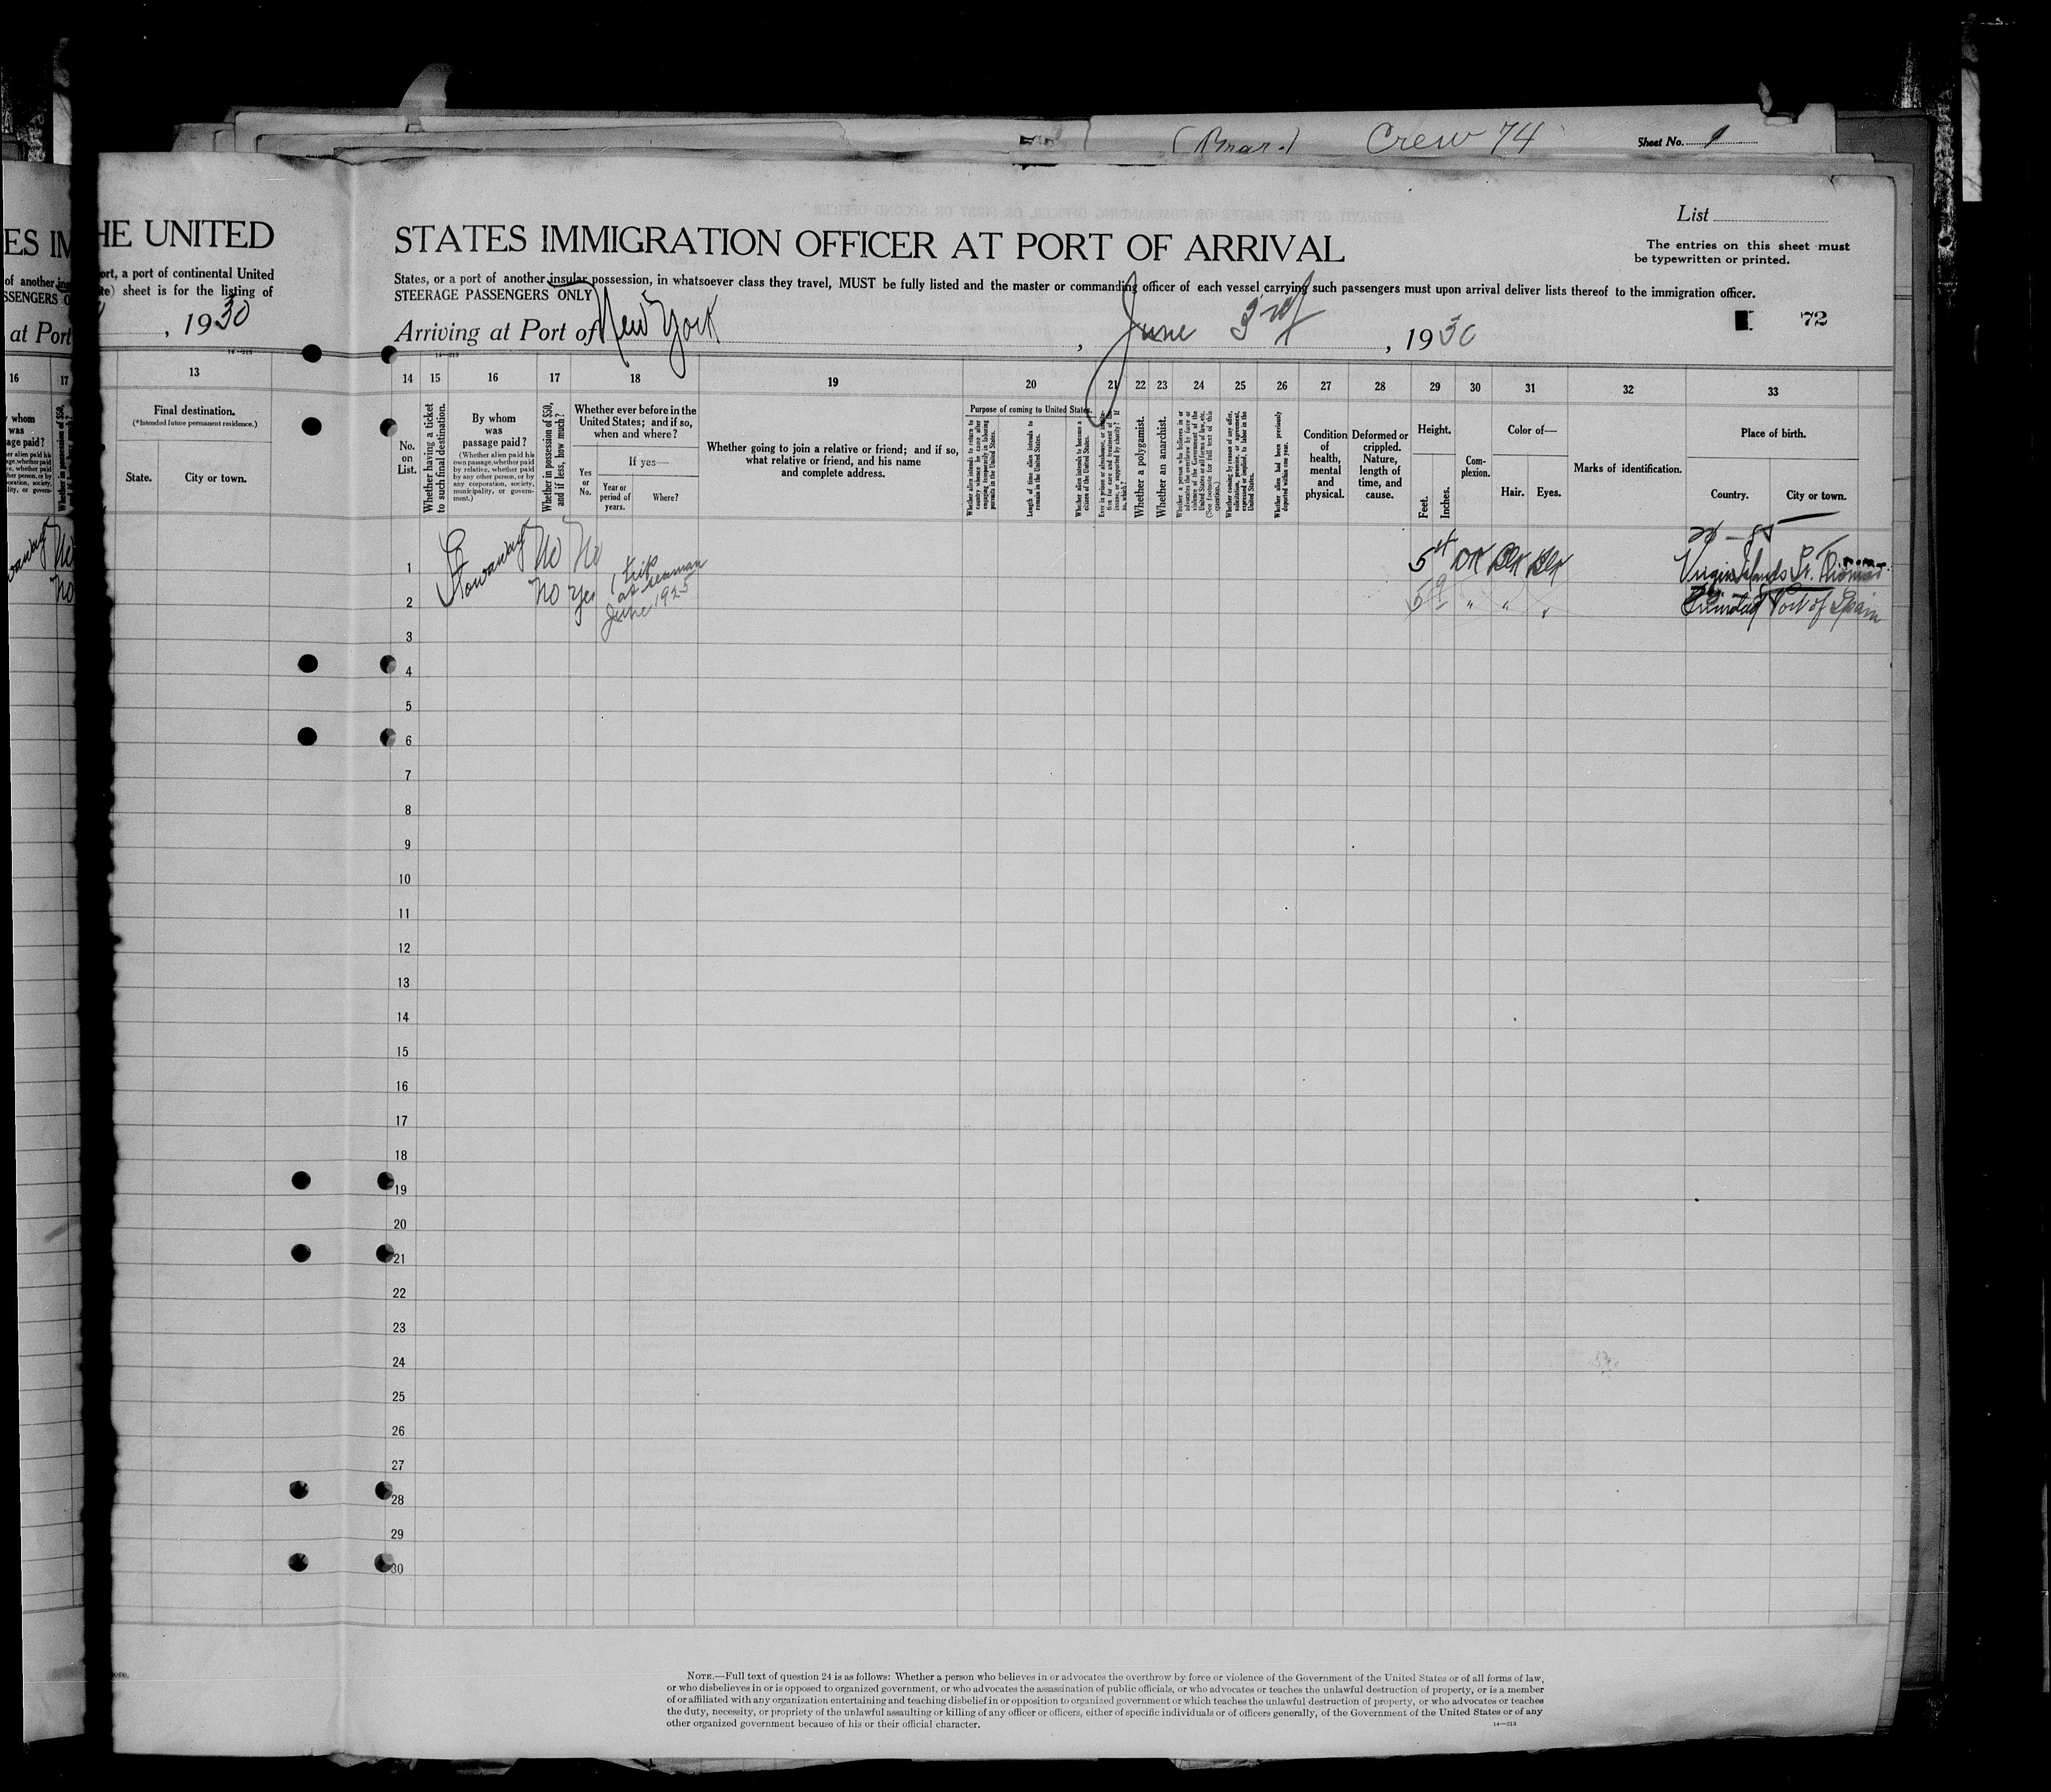 (Brar.) Crew 74 Sheet No. 1
List
HE UNITED STATES IMMIGRATION OFFICER AT PORT OF ARRIVAL
The entries on this sheet must
be typewritten or printed.
ort, a port of continental United States, or a port of another insular possession, in whatsoever class they travel, MUST be fully listed and the master or commanding officer of each vessel carrying such passengers must upon arrival deliver lists thereof to the immigration officer.
te) sheet is for the listing of STEERAGE PASSENGERS ONLY
, 1930 Arriving at Port of New York , June 3rd , 1930 72
14—213 14—213
13 14 15 16 17 18 19 20 21 22 23 24 25 26 27 28 29 30 31 32 33
Final destination.
(*Intended future permanent residence.)
State. City or town.
No. on List.
Whether having a ticket to such final destination.
By whom was passage paid?
(Whether alien paid his own passage, whether paid by relative, whether paid by any other person, or by any corporation, society, municipality, or government.)
Whether in possession of $50, and if less, how much?
Whether ever before in the United States; and if so, when and where?
Yes or No.
If yes—
Year or period of years. Where?
Whether going to join a relative or friend; and if so, what relative or friend, and his name and complete address.
Purpose of coming to United States.
Whether alien intends to return to country whence he came after engaging temporarily in laboring pursuits in the United States.
Length of time alien intends to remain in the United States.
Whether alien intends to become a citizen of the United States.
Whether a polygamist.
Whether an anarchist.
Whether a person who believes in or advocates the overthrow by force or violence of the Government of the United States or all forms of law, etc. (See footnote for full text of this question.)
Whether coming by reason of any offer, solicitation, promise, or agreement, expressed or implied, to labor in the United States.
Whether alien had been previously deported within one year.
Condition of health, mental and physical.
Deformed or crippled. Nature, length of time, and cause.
Height.
Feet. Inches.
Complexion.
Color of—
Hair. Eyes.
Marks of identification.
Place of birth.
Country. City or town.
1 Stowaway No No 5 4 DK Blk Blk Virgin Islands St. Thomas
2 No Yes 1 trip as seaman June 1925 5 " " " Trinidad Port of Spain
3
4
5
6
7
8
9
10
11
12
13
14
15
16
17
18
19
20
21
22
23
24
25
26
27
28
29
30
NOTE.—Full text of question 24 is as follows: Whether a person who believes in or advocates the overthrow by force or violence of the Government of the United States or of all forms of law,
or who disbelieves in or is opposed to organized government, or who advocates the assassination of public officials, or who advocates or teaches the unlawful destruction of property, or is a member
of or affiliated with any organization entertaining and teaching disbelief in or opposition to organized government or which teaches the unlawful destruction of property, or who advocates or teaches
the duty, necessity, or propriety of the unlawful assaulting or killing of any officer or officers, either of specific individuals or of officers generally, of the Government of the United States or of any
other organized government because of his or their official character.
14—213